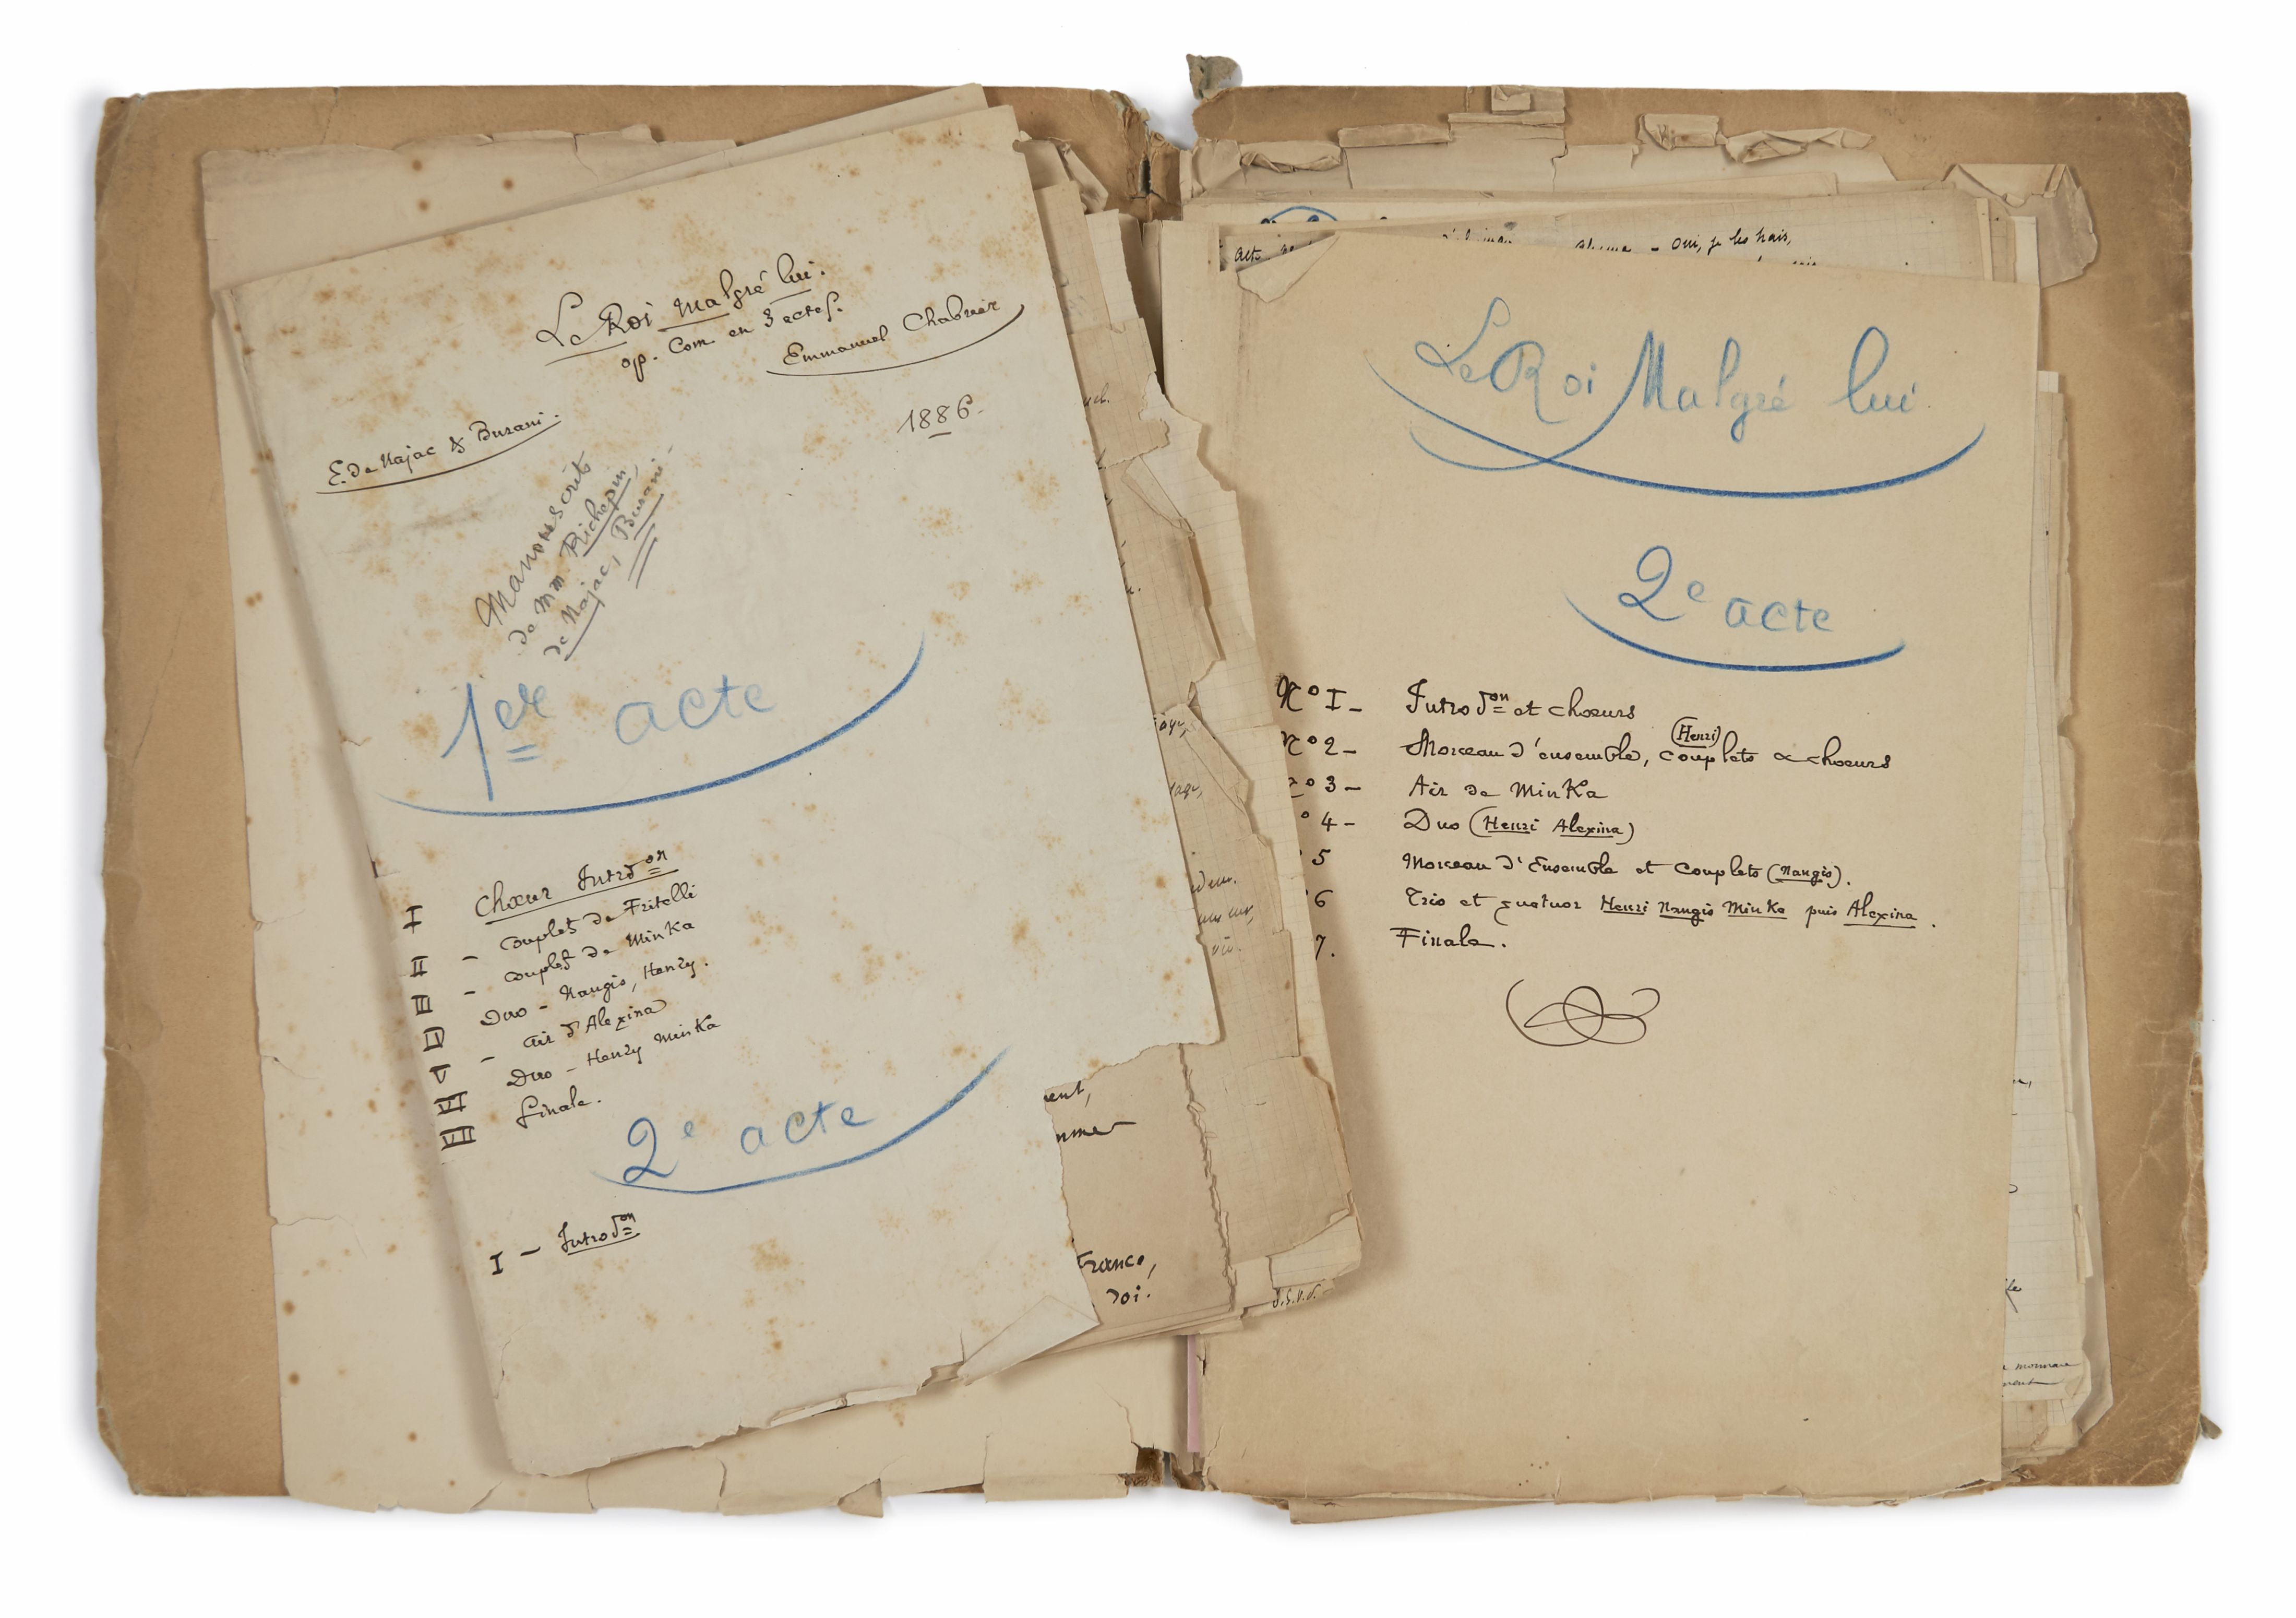 Le Roi Malgré lui.
op. Com. en 3 actes.
Emmanuel Chabrier
1886-
E. de Najac & Burani.
Manouscrits
de MM Richepin,
de Najac, Burani-
1er acte
I Chœur Introdon
II - couplets de Fritelli
III - couplets de Minka
IV Duo - Nangis, Henry.
V - air d'Alexina
VI Duo - Henry Minka
VII finale.
2e acte
I - Introdon
ent,
France,
roi.
acte
- oui, je les hais,
Le Roi Malgré lui
2e acte
No I - Introdon et chœurs
No 2 - Morceau d'ensemble, couplets (Henri) & chœurs
o 3 - Air de Minka
o 4 - Duo (Henri Alexina)
5 Morceau d'Ensemble et couplets (Nangis).
6 Trio et quatuor Henri Nangis Minka puis Alexina.
7. Finale.